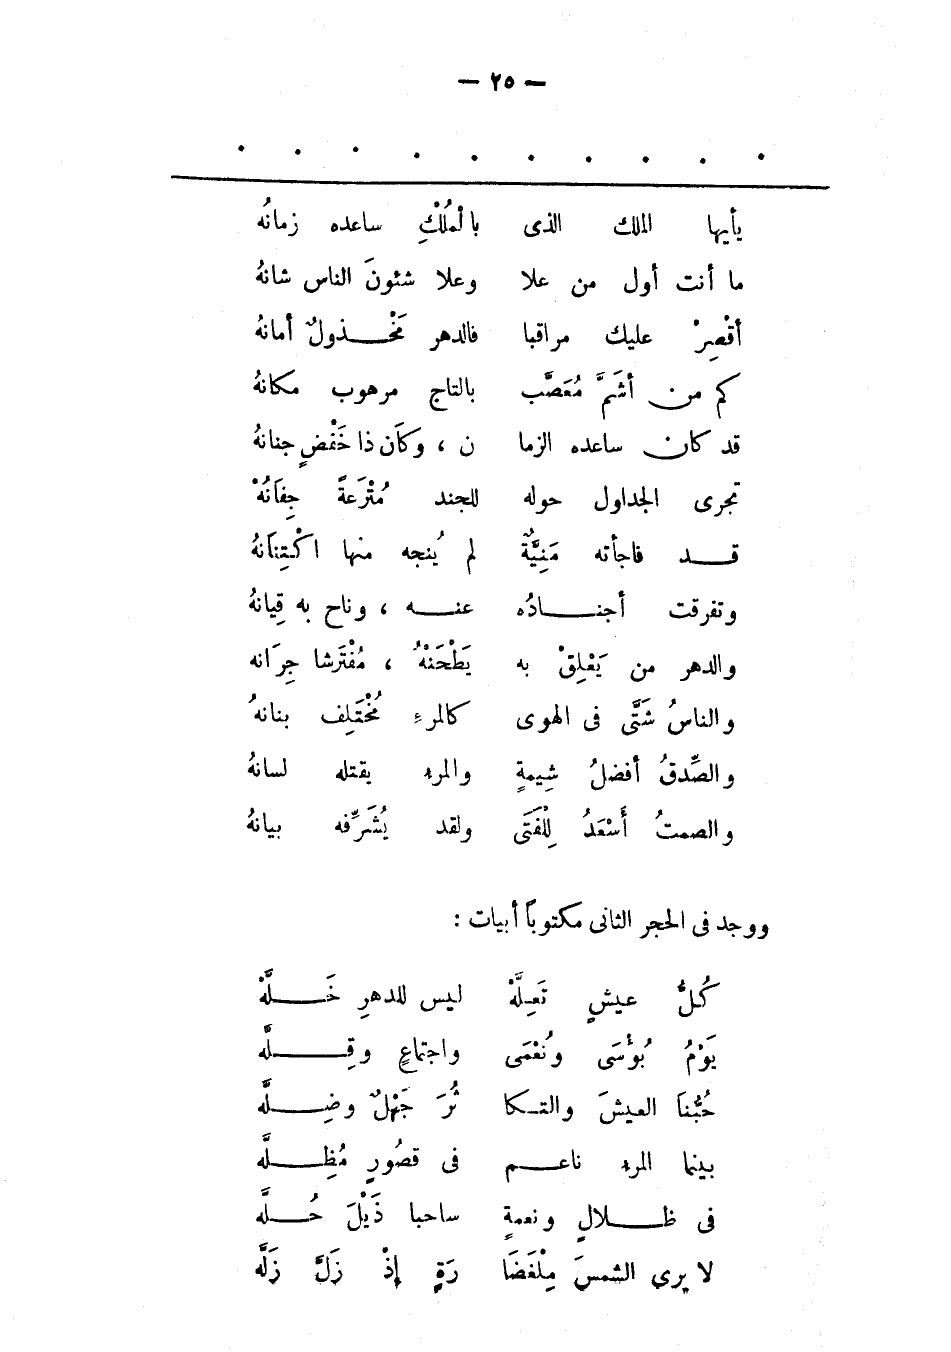 — ٢٥ —
. . . . . . . . . .
يأيها الملك الذى بالمُلْكِ ساعده زمانُه
ما أنت أول من علا وعلا شئونَ الناس شانهُ
أقْصِرْ عليك مراقبا فالدهر مَخْـذولٌ أمانهُ
كم من أشَمَّ مُعَصَّب بالتاج مرهوب مكانهُ
قد كان ساعده الزما ن ، وكان ذا خَفْضٍ جنانهُ
تجرى الجداول حوله للجند مُتْرَعةً جِفانُهْ
قــد فاجأته مَنِيَّةٌ لم يُنجه منها اكْتِنانهُ
وتفرقت أجنــادُه عنــه ، وناح به قِيانهُ
والدهر من يَعْلِقْ به يَطْحَنْهُ ، مُفْتَرشا جِرَانه
والناسُ شَتَّى فى الهوى كالمرءِ مُخْتَلِف بنانهُ
والصِّدقُ أفضلُ شِيمةٍ والمرء يقتله لسانهُ
والصمتُ أَسْعَدُ لِلْفَتَى ولقد يُشَرِّفه بيانهُ
ووجد فى الحجر الثانى مكتوباً أبيات :
كُلُّ عيشٍ تَعِلَّهْ ليس للدهرِ خَــلَّهْ
يَوْمُ بُؤْسَى ونُعْمَى واجتماعٍ وقِــلَّه
حُبُّنا العيشَ والتـكا ثُرَ جَهْلٌ وضِــلَّه
بينما المرء ناعـم فى قصُورٍ مُظِــلَّه
فى ظــلالٍ ونعمةٍ ساحبا ذَيْلَ حُــلَّه
لا يرى الشمسَ مِلْغَضَا رَةٍ إذْ زَلَّ زَلَّه